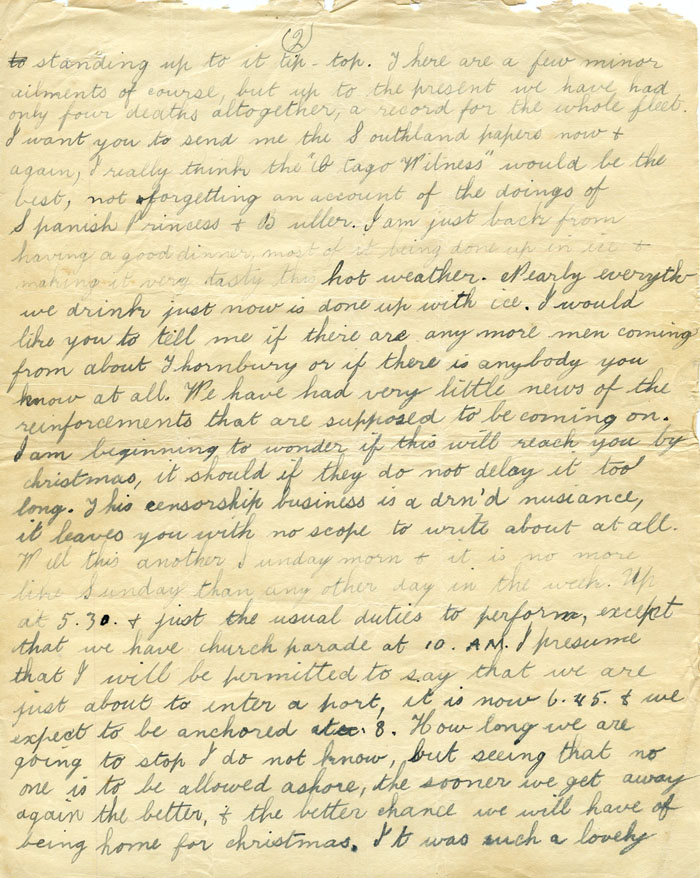 (2)
to standing up to it tip-top. There are a few minor
ailments of course, but up to the present we have had
only four deaths altogether, a record for the whole fleet.
I want you to send me the Southland papers now &
again, I really think the "Otago Witness" would be the
best, not forgetting an account of the doings of
Spanish Princess & Buller. I am just back from
having a good dinner, most of it being done up in ice &
making it very tasty this hot weather. Nearly everyth
we drink just now is done up with ice. I would
like you to tell me if there are any more men coming
from about Thornbury or if there is anybody you
know at all. We have had very little news of the
reinforcements that are supposed to be coming on.
I am beginning to wonder if this will reach you by
christmas, it should if they do not delay it too
long. This censorship business is a drn'd nusiance,
it leaves you with no scope to write about at all.
Well this another Sunday morn & it is no more
like Sunday than any other day in the week. Up
at 5.30. & just the usual duties to perform, except
that we have church parade at 10. AM. I presume
that I will be permitted to say that we are
just about to enter a port, it is now 6.45. & we
expect to be anchored 8. How long we are
going to stop I do not know, but seeing that no
one is to be allowed ashore, the sooner we get away
again the better, & the better chance we will have of
being home for christmas. It was such a lovely